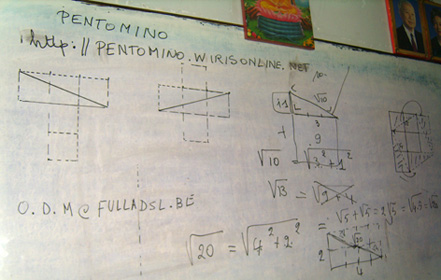 PENTOMINO
http://PENTOMINO.WIRISONLINE.NET
C
√10
1
L
3
+ 9
√10 = √3² + 1²
√13 = √9 + 4
O.D.M@FULLADSL.BE
= √5 + √5 = 2√5 = √4.5 = √20
√20 = √4² + 2²
2
4